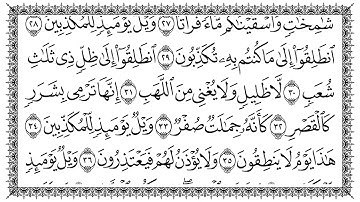 شَٰمِخَٰتٍ وَأَسْقَيْنَٰكُم مَّآءً فُرَاتًا ٢٧ وَيْلٌ يَوْمَئِذٍ لِّلْمُكَذِّبِينَ ٢٨
ٱنطَلِقُوٓا۟ إِلَىٰ مَا كُنتُم بِهِۦ تُكَذِّبُونَ ٢٩ ٱنطَلِقُوٓا۟ إِلَىٰ ظِلٍّ ذِى ثَلَٰثِ
شُعَبٍ ٣٠ لَّا ظَلِيلٍ وَلَا يُغْنِى مِنَ ٱللَّهَبِ ٣١ إِنَّهَا تَرْمِى بِشَرَرٍ
كَٱلْقَصْرِ ٣٢ كَأَنَّهُۥ جِمَٰلَتٌ صُفْرٌ ٣٣ وَيْلٌ يَوْمَئِذٍ لِّلْمُكَذِّبِينَ ٣٤
هَٰذَا يَوْمُ لَا يَنطِقُونَ ٣٥ وَلَا يُؤْذَنُ لَهُمْ فَيَعْتَذِرُونَ ٣٦ وَيْلٌ يَوْمَئِذٍ